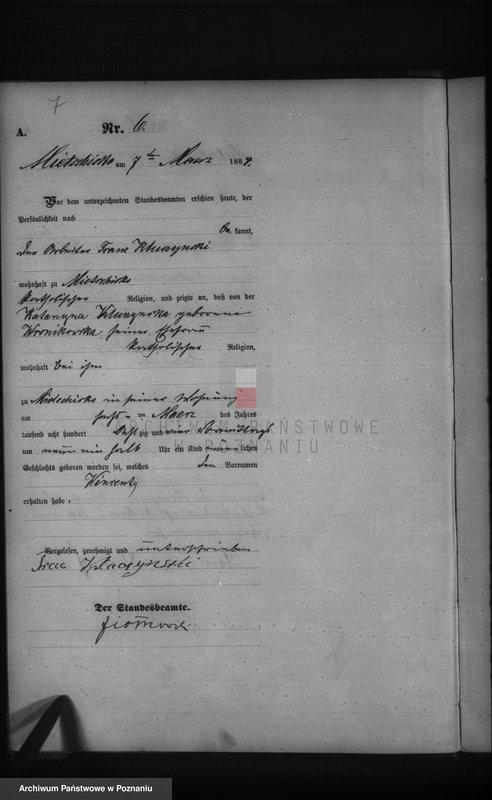 7
A.
Nr. 6.
Mietschisko am 7ten Maerz 1884.
Vor dem unterzeichneten Standesbeamten erschien heute, der
Persönlichkeit nach
be kannt,
der Arbeiter Franz Kluczynski
wohnhaft zu Mietschisko
katholischer Religion, und zeigte an, daß von der
Katarzyna Kluczynska geborene
seiner Ehefrau
katholischer Religion,
wohnhaft bei ihm
zu Mietschisko in seiner Wohnung
am sechs ten Maerz des Jahres
tausend acht hundert acht zig und vier
um neun ein halb Uhr ein Kind männlichen
Geschlechts geboren worden sei, welches den Vornamen
Wincenty
erhalten habe.
ARCHIWUM PAŃSTWOWE
W POZNANIU
Vorgelesen, genehmigt und unterschrieben
Der Standesbeamte.
Archiwum Państwowe w Poznaniu